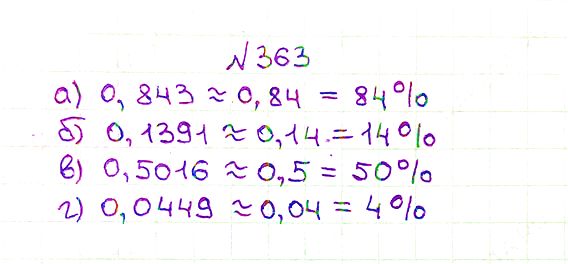 №363
а) 0,843 ≈ 0,84 = 84%
б) 0,1391 ≈ 0,14 = 14%
в) 0,5016 ≈ 0,5 = 50%
г) 0,0449 ≈ 0,04 = 4%